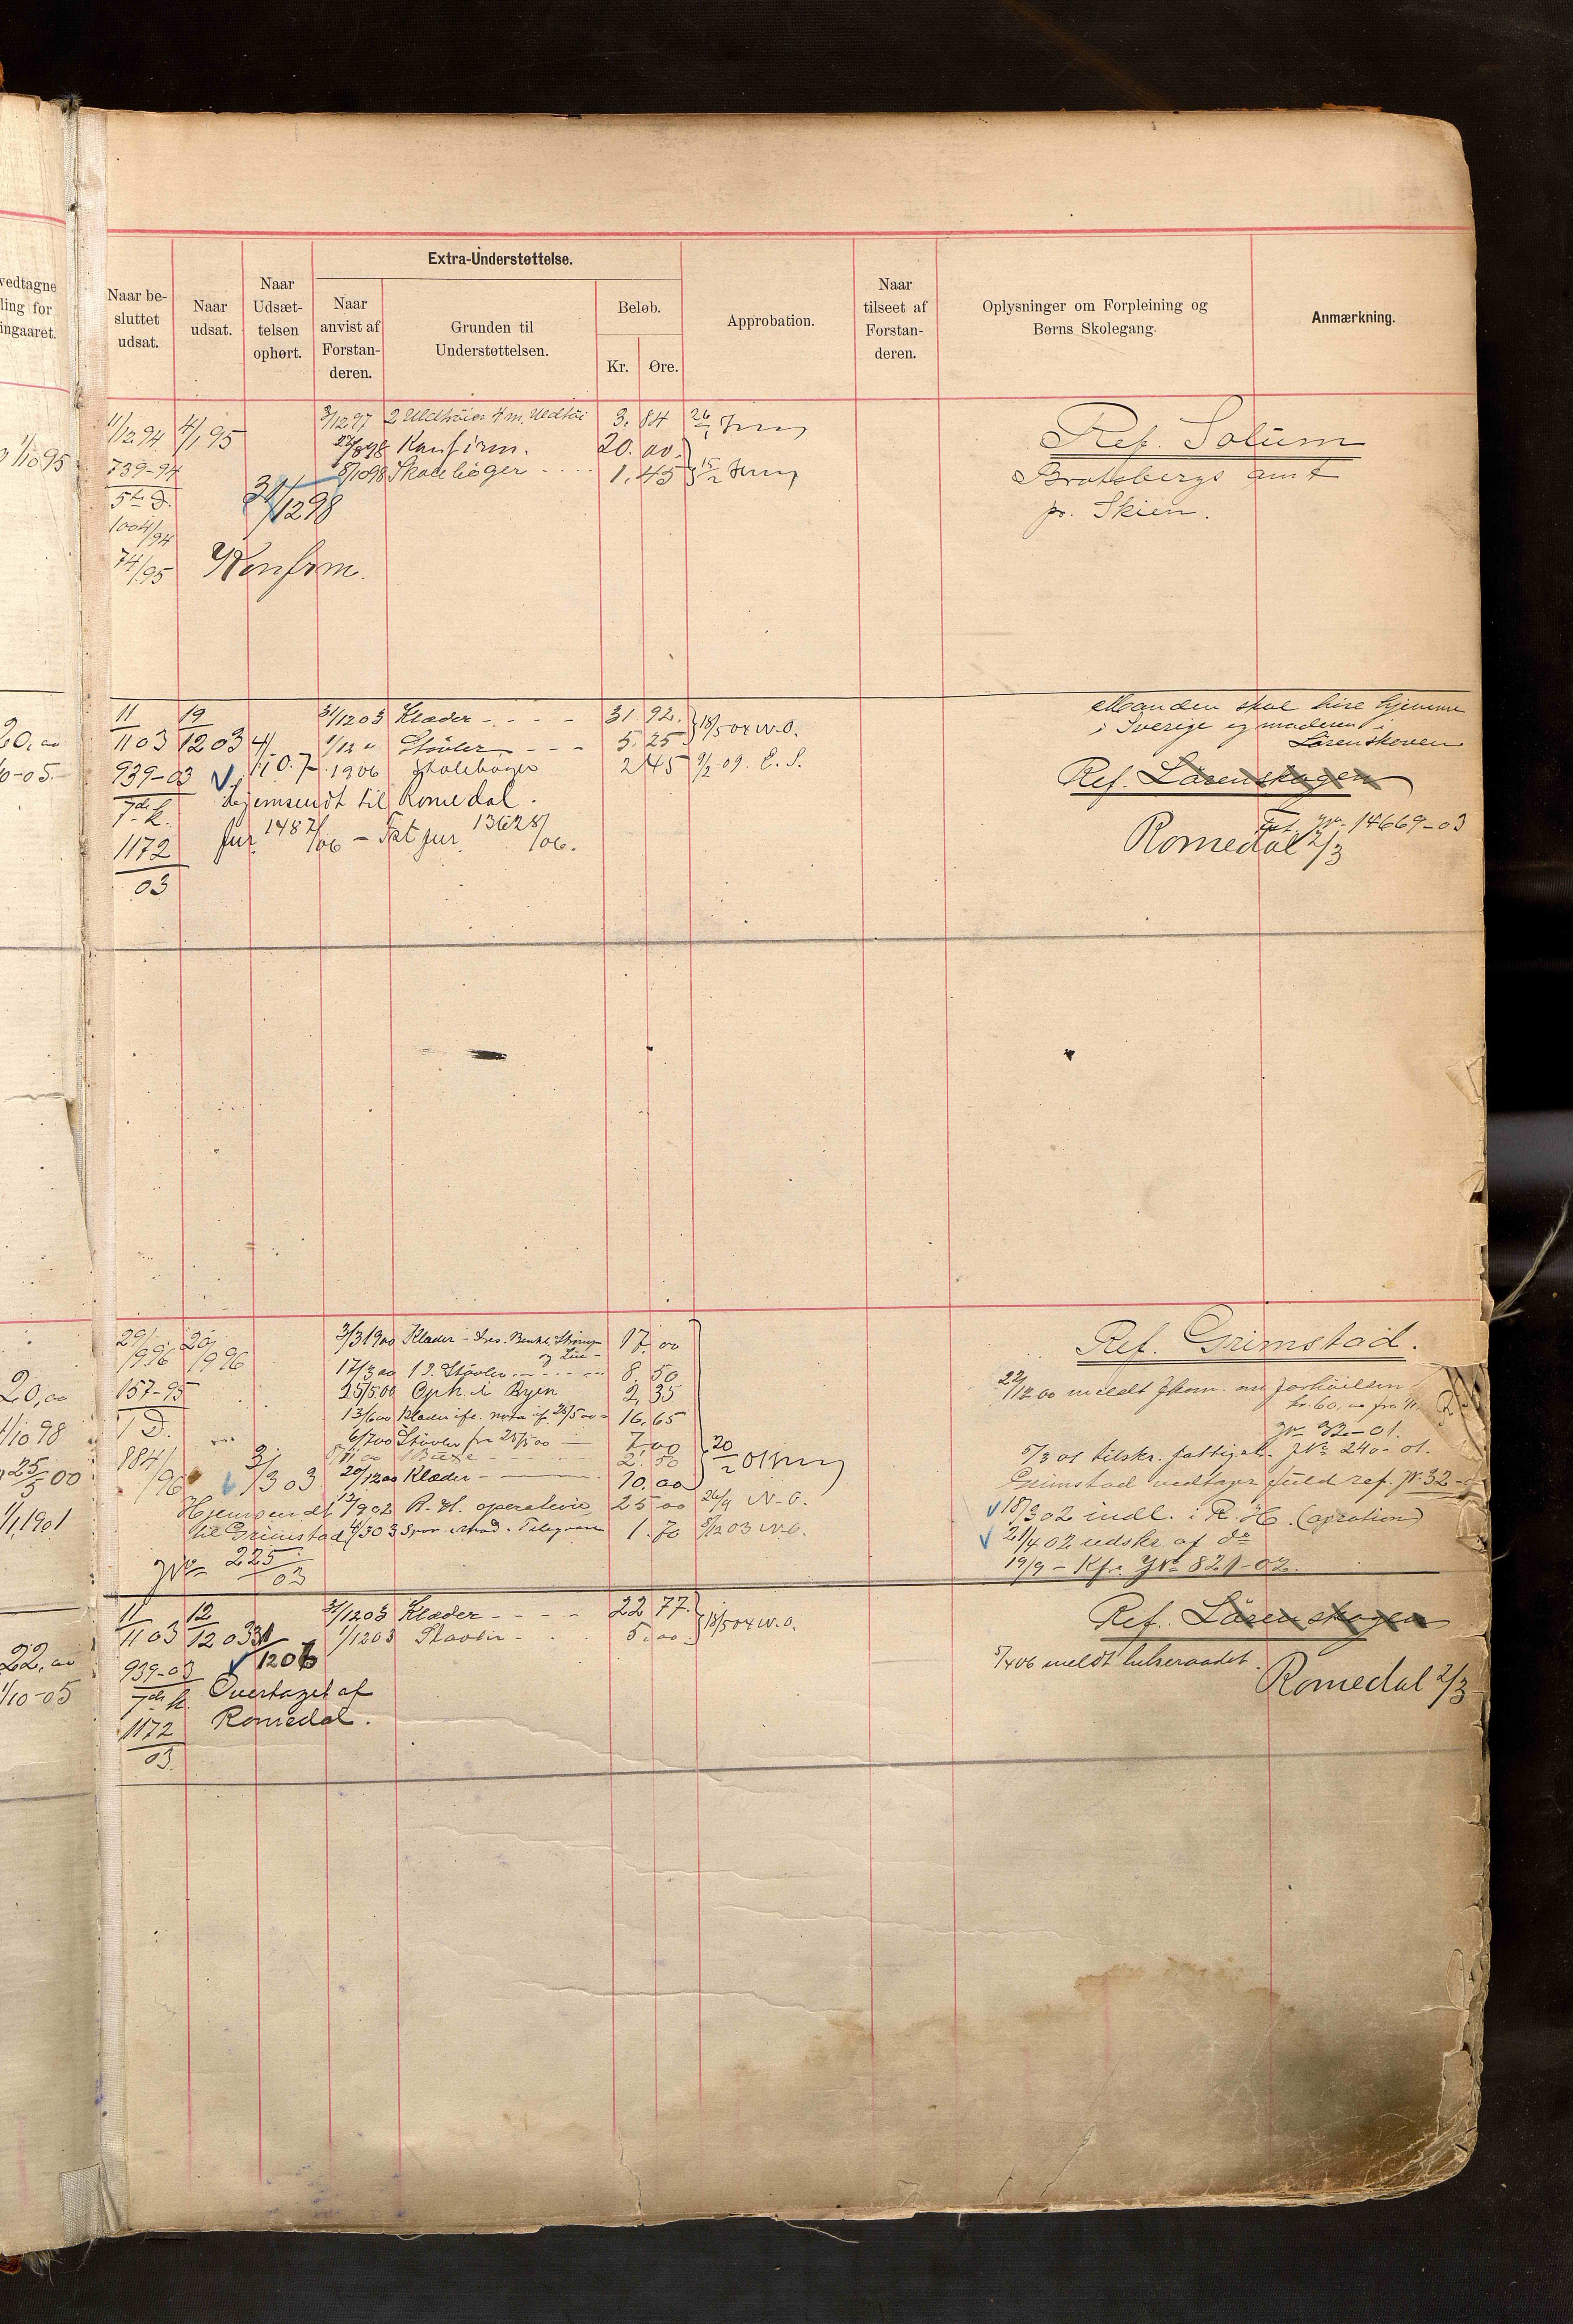 vedtagne
ling for
ingaaret.
Naar be-
sluttet
udsat.
Naar
udsat.
Naar
Udsæt-
telsen
ophørt.
Extra-Understøttelse.
Naar
anvist af
Forstan-
deren.
Grunden til
Understøttelsen.
Beløb.
Kr.
Øre.
Approbation.
Naar
tilseet af
Forstan-
deren.
Oplysninger om Forpleining og
Børns Skolegang.
Anmærkning.
1/10 95
11/12 94 4/1 95
739-94
5te D.
1004/94
74/95
31/12 98
Konfrm.
3/12 97 2 Uldtrøier 4 m. Uldtøi 3. 84 26/1
22/8 98 Konfirm. 20. 00.
8/10 98 Skolebøger 1. 45 15/2
Ref. Solum
Bratsbergs amt
pr. Skien.
20,00
10-05.
11/11 03 19/12 03
939-03
7de k.
1172/03
31/12 03 Klæder - - - - 31 92. 18/5 04 N.O.
1/12 " Støvler - - - 5. 25
1906 Skolebøger 2 45 9/2-09. E. S.
Hjemsendt til Romedal.
Jur 1487/06 - Fat jur 13628/06.
Manden skal være hjemme
i Sverige og moderen i
Lørenskoven
Ref. Lørenskogen
Fat. Jno. 14669-03
Romedal 2/3
20,00
1/10 98
25/5 00
1/1 1901
29/1 96 20/1 96
157-95
1 D.
884/96
3/3 03
Hjemsendt
til Grimstad
Jno 225/03
3/3 1900 Klæder - 17. 00
og Liv -
17/3 00 1 P. Støvler 8. 50
25/5 00 Oph. i Byen 2, 35
13/6 00 Klæder ifl. nota af 25/5 00 16. 65
6/7 00 Støvler fra 25/5 00 - 7. 00
Buxe 2. 50
20/12 00 Klæder - 10. 00 20/2 01
12/9 02 R. H. operation 25 00 26/9 N. O.
4/3 03 Spor. Mad. Telegram 1. 70 5/12 03 N.O.
Ref. Grimstad.
22/12 00 meldt Jkom. om forhøielsen
kr. 60,00 fra
Jno 32-01.
5/3 01 tilskr. fattigk. Jno 240-01.
Grimstad vedtager fuld ref. Jno 32-
18/3 02 indl. i R. H. (opration)
21/4 02 udskr. af do
19/9 - Kfr. Jno 821-02.
22,00
1/10-05
11/11 03 12/12 03
31/12 06
939-03
7de k.
1172/03
Overtaget af
Romedal.
31/12 03 Klæder - - - - 22 77. 18/5 04 N.O.
1/12 03 Støvler - 5. 00
Ref. Lørenskogen
5/4 06 meldt helseraadet.
Romedal 2/3